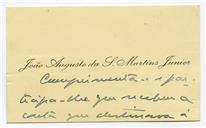 João Augusto da S. Martins Junior
Cumprimenta-o e par-
ticipa-lhe que recebeu a
carta que destinava á